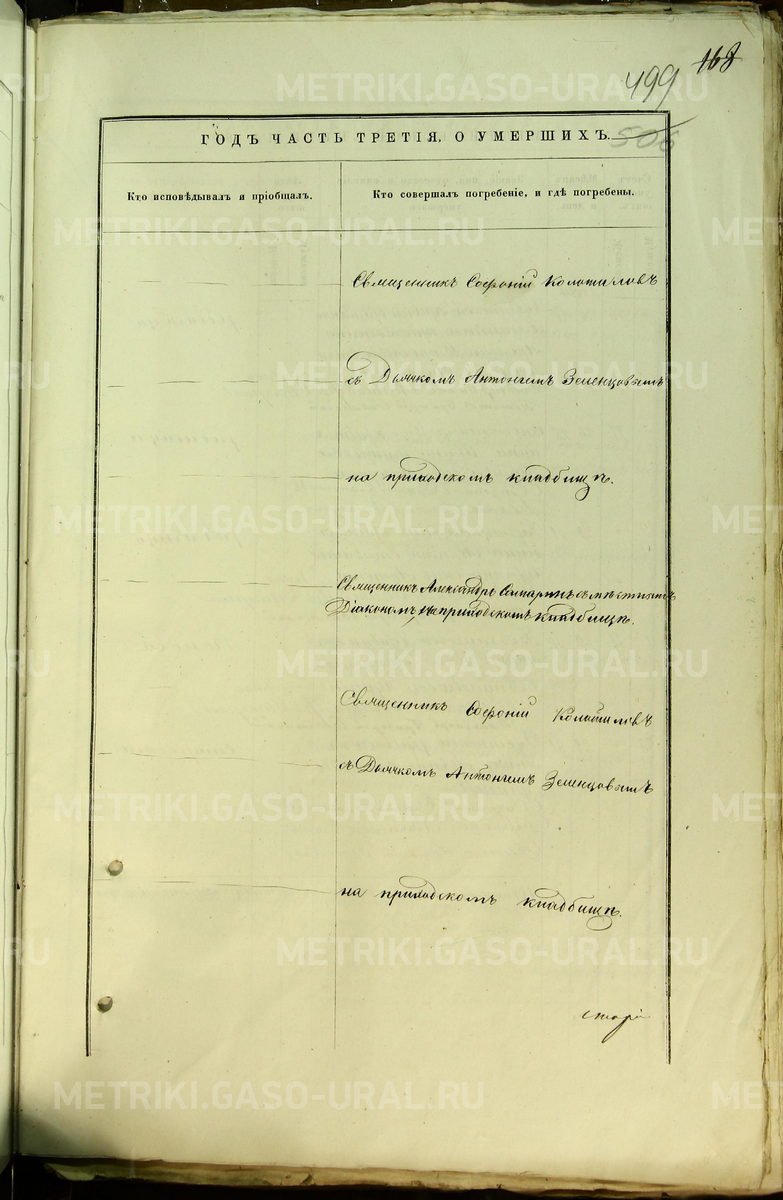 168
499
506
ГОДЪ ЧАСТЬ ТРЕТІЯ, О УМЕРШИХЪ.
Кто исповѣдывалъ и пріобщалъ.
Кто совершалъ погребеніе, и гдѣ погребены.
Священникъ Софоній Колотиловъ
съ Дьячкомъ Антоніемъ Зеленцовымъ
на приходскомъ кладбищѣ.
Священникъ Александръ съ мѣстнымъ
Діакономъ, на приходскомъ кладбищѣ.
Священникъ Софоній Колотиловъ
съ Дьячкомъ Антоніемъ Зеленцовымъ
на приходскомъ кладбищѣ.
METRIKI.GASO-URAL.RU